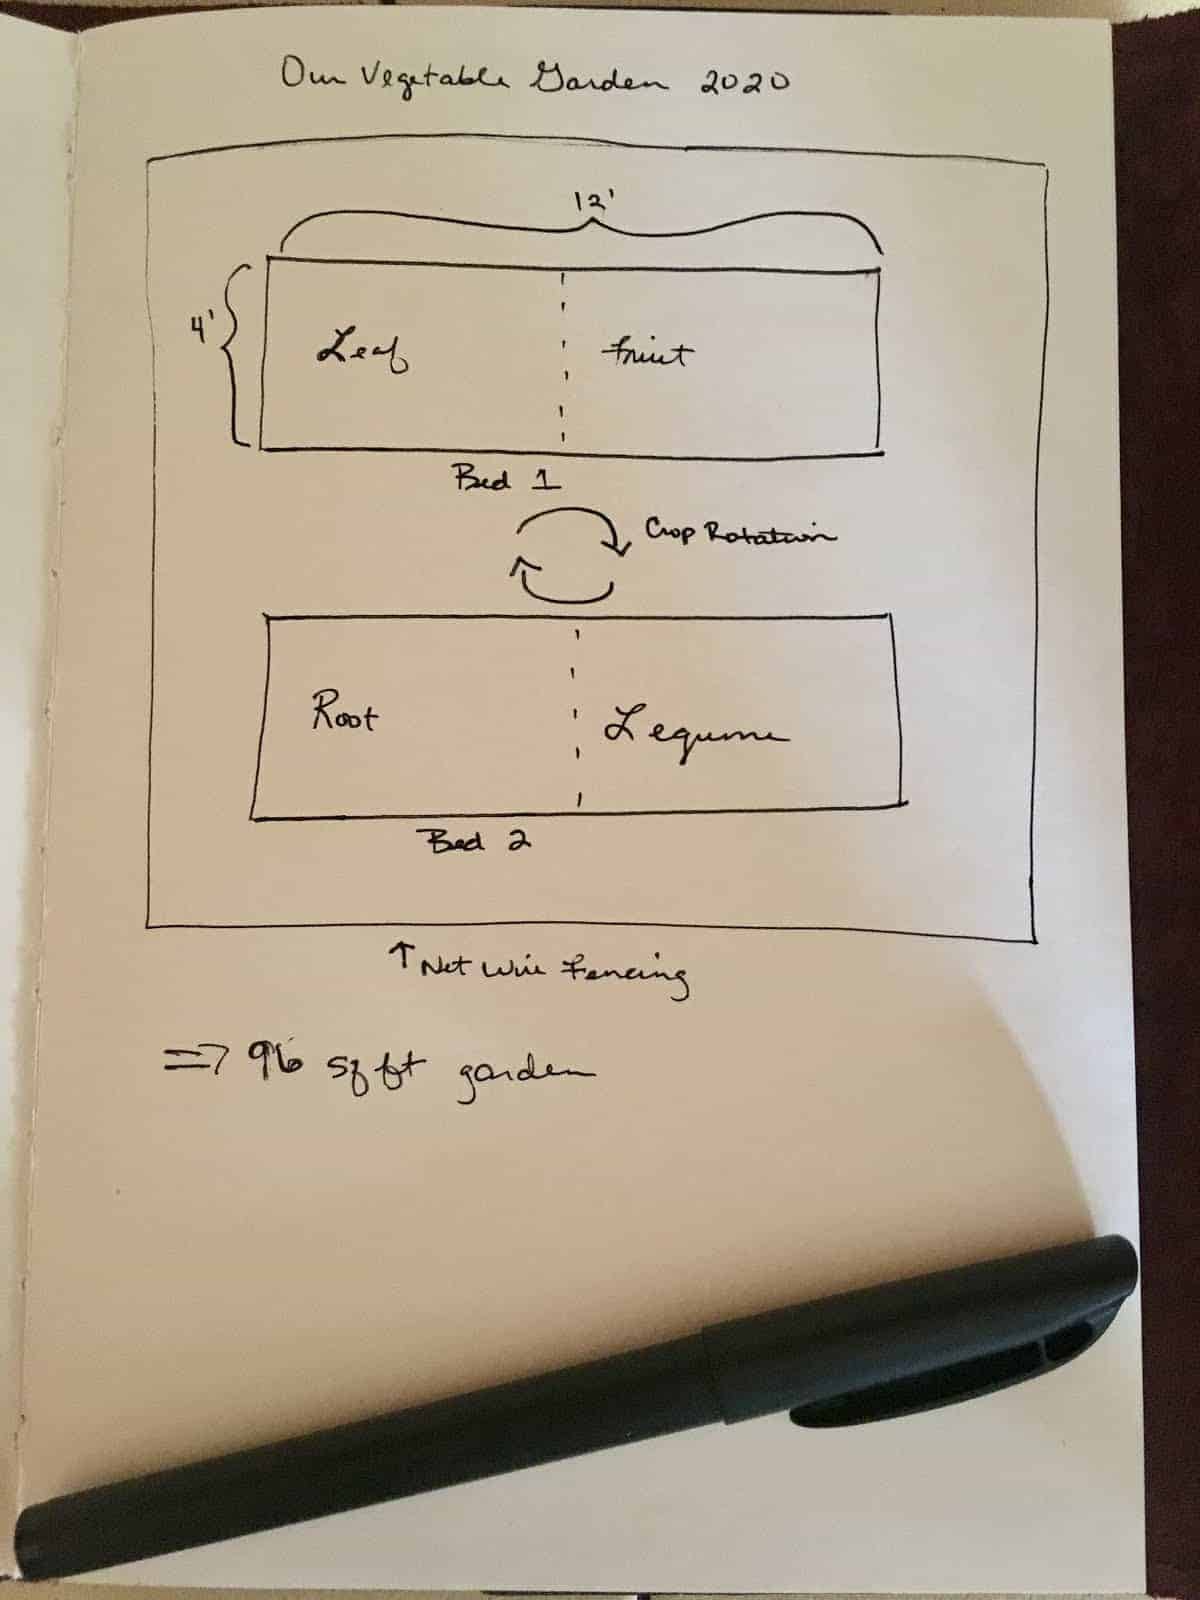 Our Vegetable Garden 2020
12'
4'
Leaf
Fruit
Bed 1
Crop Rotation
Root
Legume
Bed 2
↑ Net Wire Fencing
=> 96 sq ft garden